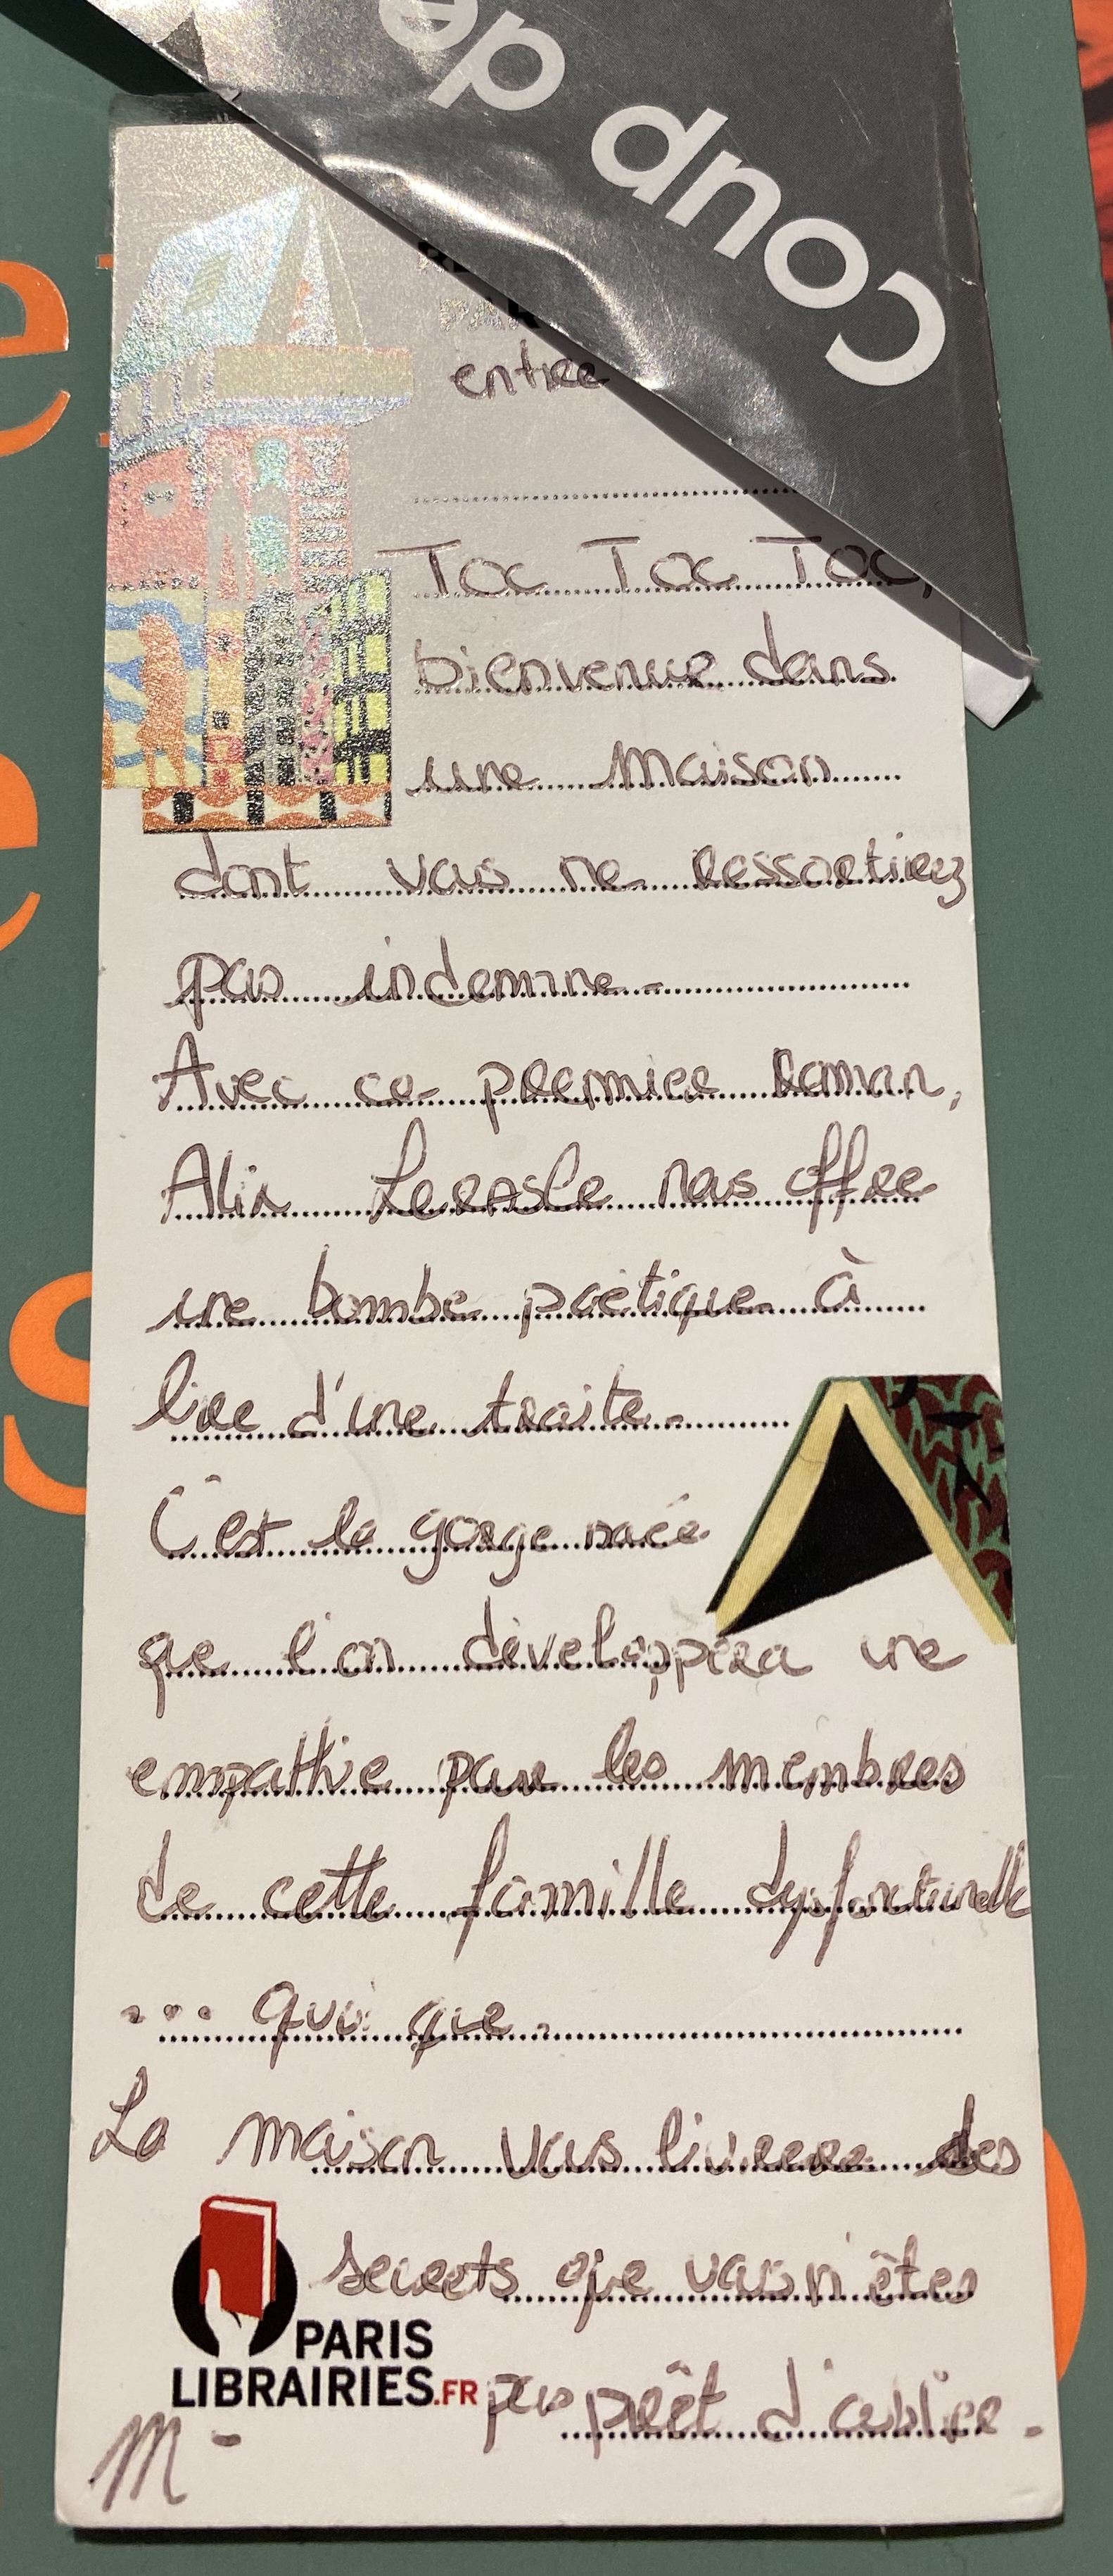 Coup de
PAR
entree
Toc Toc Toc,
bienvenue dans
une maison
dont vous ne ressortirez
pas indemne.
Avec ce premier roman,
Alix Lerasle nous offre
une bombe poétique à
lire d'une traite.
C'est la gorge nouée
que l'on développera une
empathie pour les membres
de cette famille dysfonctionnelle
... quoi que.
La maison vous livrera des
secrets que vous n'êtes
PARIS
LIBRAIRIES.FR
pas prêt d'oublier.
M-